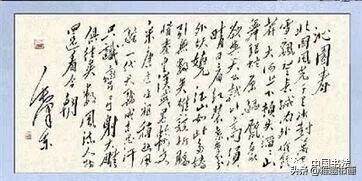 沁园春
北国风光千里冰封万里
雪飘望长城内外惟馀莽
莽大河上下顿失滔滔山
舞银蛇原驰蜡象
欲与天公试比高须
晴日看红装素裹
分外妖娆江山如此多娇
引无数英雄竞折腰
惜秦皇汉武略输文
采唐宗宋祖稍逊风
骚一代天骄成吉思汗
只识弯弓射大雕
俱往矣数风流人物
还看今朝
毛泽东
中国书法